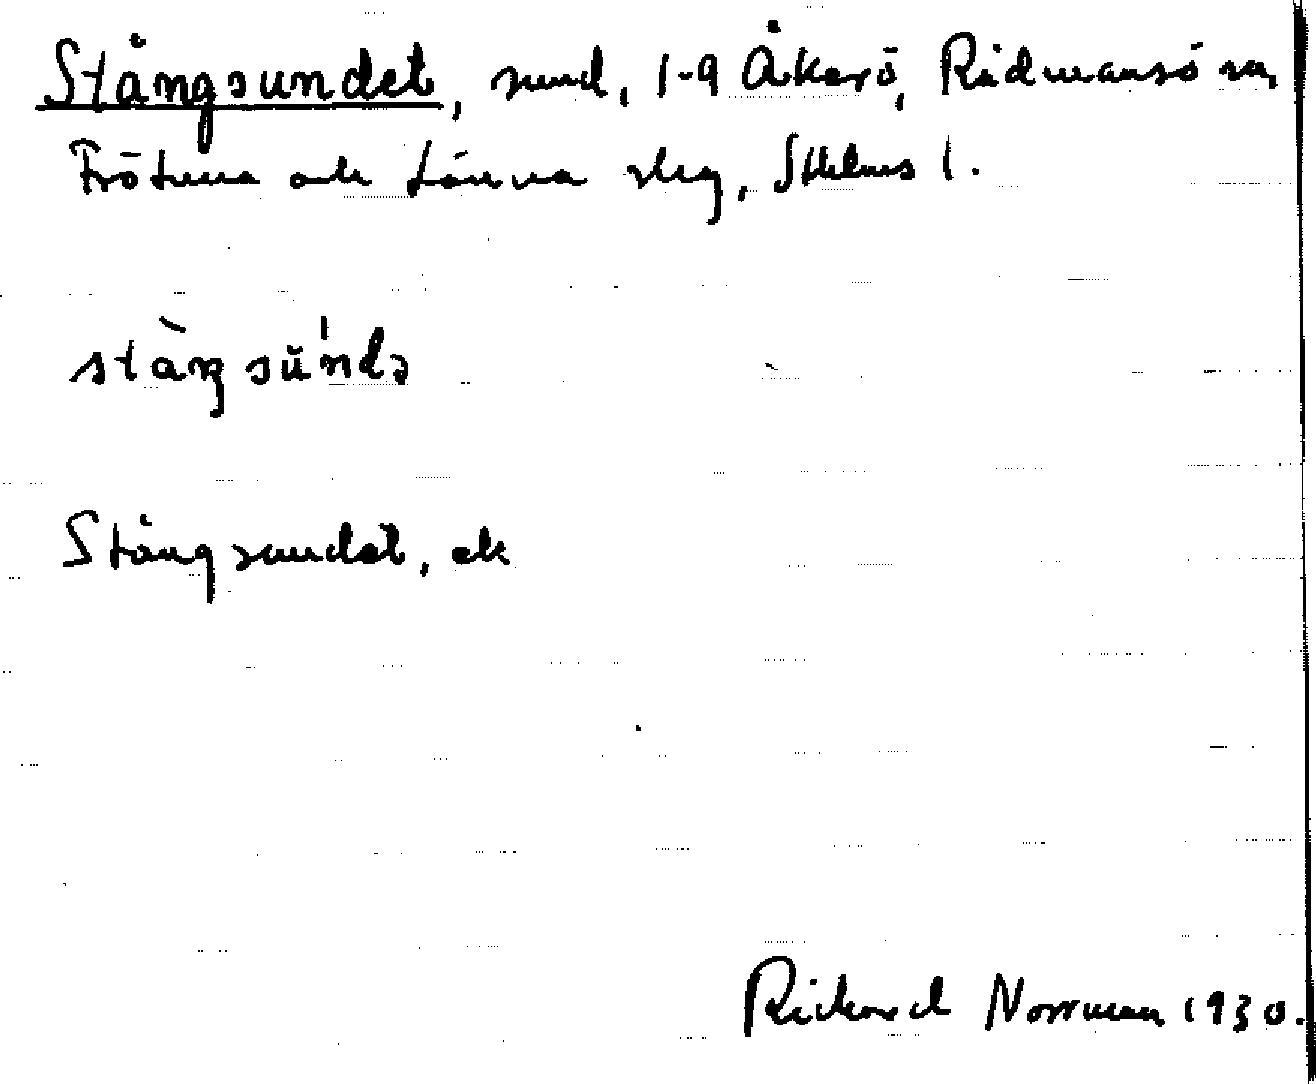 Stångsundet, sund, 1-9 Åkerö, Rådmansö sn,
Frötuna och Länna slg, Sthlms l.
stàŋsŭ'ndə
Stångsundet, ek
Rickard Norrman 1930.